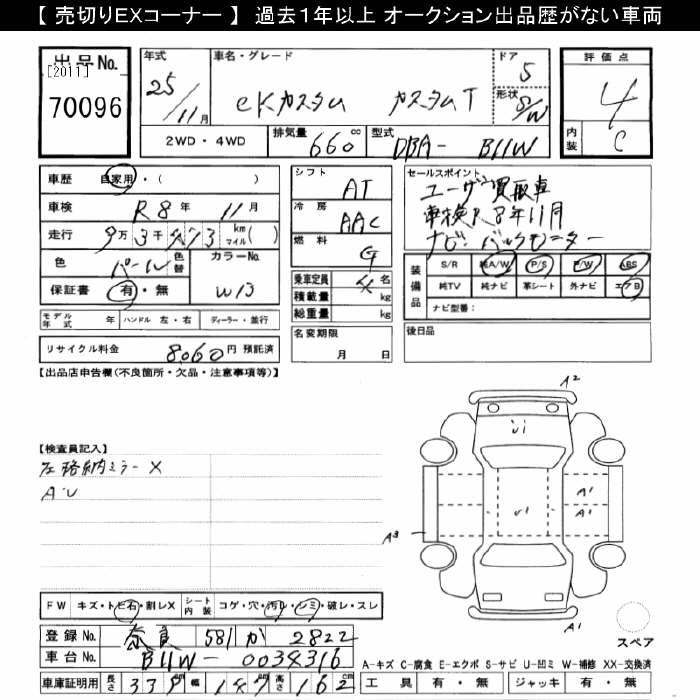 【 売切りEXコーナー 】 過去1年以上 オークション出品歴がない車両
出品No.
[2011]
70096
年式 25/11月
車名・グレード eKカスタム カスタムT
ドア 5
形状 S/W
2WD・4WD 排気量 660 cc 型式 DBA- B11W
評価点 4
内装 C
車歴 自家用・( )
車検 R8年11月
走行 9万3千473 km マイル( )
色 パール 色替 カラーNo. W13
保証書 有・無
モデル年式 年 ハンドル 左・右 ディーラー・並行
リサイクル料金 8060円 預託済
シフト AT
冷房 AAC
燃料 G
乗車定員 4名
積載量 kg
総重量 kg
名変期限 月 日
セールスポイント
ユーザー買取車
車検R8年11月
ナビ バックモニター
装備品 S/R 純A/W P/S P/W ABS
純TV 純ナビ 革シート 外ナビ エアB
ナビ型番:
後日品
【出品店申告欄(不良箇所・欠品・注意事項等)】
【検査員記入】
左格納ミラーX
AU
A2
U1
A1
U1
A1
A3
A1
スペア
FW キズ・トビ石・割レX シート内装 コゲ・穴・汚レ・シミ・破レ・スレ
登録No. 奈良 581 か 2822
車台No. B11W-0034316
車庫証明用 長さ 339 cm 幅 147 cm 高さ 162 cm
A-キズ C-腐食 E-エクボ S-サビ U-凹ミ W-補修 XX-交換済
工具 有・無 ジャッキ 有・無